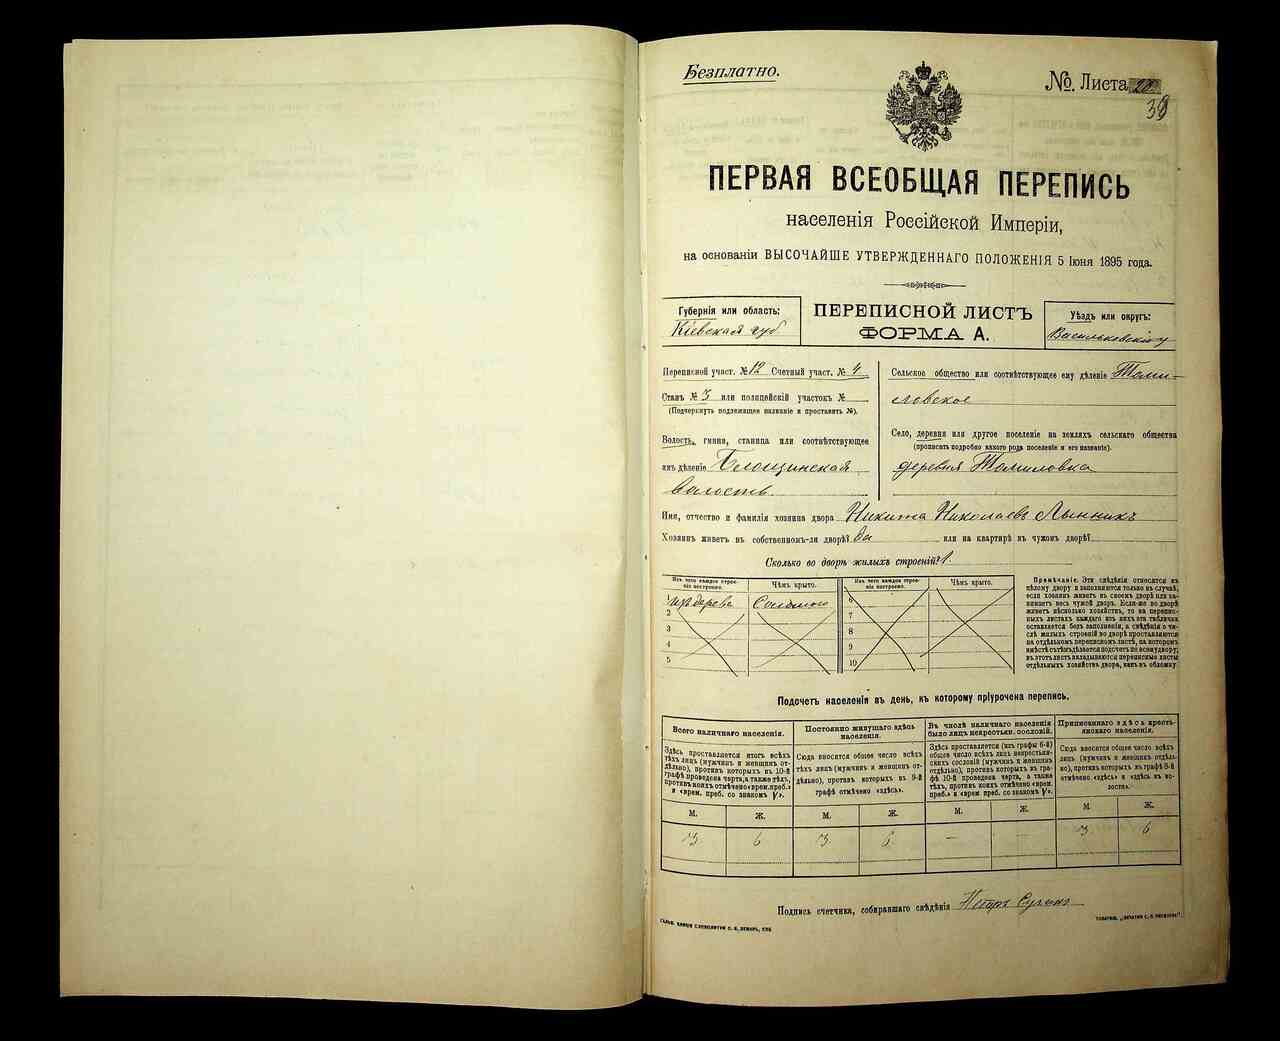 Безплатно.
№. Листа 20
39
ПЕРВАЯ ВСЕОБЩАЯ ПЕРЕПИСЬ
населенія Россійской Имперіи,
на основаніи ВЫСОЧАЙШЕ УТВЕРЖДЕННАГО ПОЛОЖЕНІЯ 5 Іюня 1895 года.
Губернія или область:
Кіевская губ
ПЕРЕПИСНОЙ ЛИСТЪ
ФОРМА А.
Уѣздъ или округъ:
Васильковскій у
Переписной участ. № 12 Счетный участ. № 4
Станъ № 3 или полицейскій участокъ №
(Подчеркнуть подлежащее названіе и проставить №).
Волость, гмина, станица или соотвѣтствующее
имъ дѣленіе Блощинская
волость
Сельское общество или соотвѣтствующее ему дѣленіе Томи-
ловское
Село, деревня или другое поселеніе на земляхъ сельскаго общества
(прописать подробно какого рода поселеніе и его названіе).
деревня Томиловка
Имя, отчество и фамилія хозяина двора Никита Николаевъ Лынникъ
Хозяинъ живетъ въ собственномъ-ли дворѣ? да или на квартирѣ въ чужомъ дворѣ?
Сколько во дворѣ жилыхъ строеній? 1.
Изъ чего каждое строе-
ніе построено.
Чѣмъ крыто.
Изъ чего каждое строе-
ніе построено.
Чѣмъ крыто.
1 изъ дерева Соломою
2
3
4
5
6
7
8
9
10
Примѣчаніе. Эти свѣдѣнія относятся къ
цѣлому двору и заполняются только въ случаѣ,
если хозяинъ живетъ въ своемъ дворѣ или за-
нимаетъ весь чужой дворъ. Если-же во дворѣ
живетъ нѣсколько хозяйствъ, то на перепис-
ныхъ листахъ каждаго изъ нихъ эта табличка
оставляется безъ заполненія, а свѣдѣнія о чи-
слѣ жилыхъ строеній во дворѣ проставляются
на отдѣльномъ переписномъ листѣ, на которомъ
вмѣстѣ съ тѣмъ дѣлается подсчетъ по всему двору;
въ этотъ листъ вкладываются переписные листы
отдѣльныхъ хозяйствъ двора, какъ въ обложку.
Подсчетъ населенія въ день, къ которому пріурочена перепись.
Всего наличнаго населенія.
Здѣсь проставляется итогъ всѣхъ
тѣхъ лицъ (мужчинъ и женщинъ от-
дѣльно), противъ которыхъ въ 10-й
графѣ проведена черта, а также тѣхъ,
противъ коихъ отмѣчено «врем. преб.»
и «врем. преб. со знакомъ V».
Постоянно живущаго здѣсь
населенія.
Сюда вносится общее число всѣхъ
тѣхъ лицъ (мужчинъ и женщинъ от-
дѣльно), противъ которыхъ въ 9-й
графѣ отмѣчено «здѣсь».
Въ числѣ наличнаго населенія
было лицъ некрестьян. сословій.
Здѣсь проставляется (изъ графы 6-й)
общее число лицъ некрестьян-
скихъ сословій (мужчинъ и женщинъ
отдѣльно), противъ которыхъ въ гра-
фѣ 10-й проведена черта, а также
тѣхъ, противъ коихъ отмѣчено «врем.
преб.» и «врем. преб. со знакомъ V».
Приписаннаго здѣсь кресть-
янскаго населенія.
Сюда вносится общее число всѣхъ
лицъ (мужчинъ и женщинъ отдѣль-
но), противъ которыхъ въ графѣ 8-й
отмѣчено «здѣсь» и «здѣсь въ во-
лости».
М. Ж. М. Ж. М. Ж. М. Ж.
3 6 3 6 — — 3 6
Подпись счетчика, собиравшаго свѣдѣнія Петръ